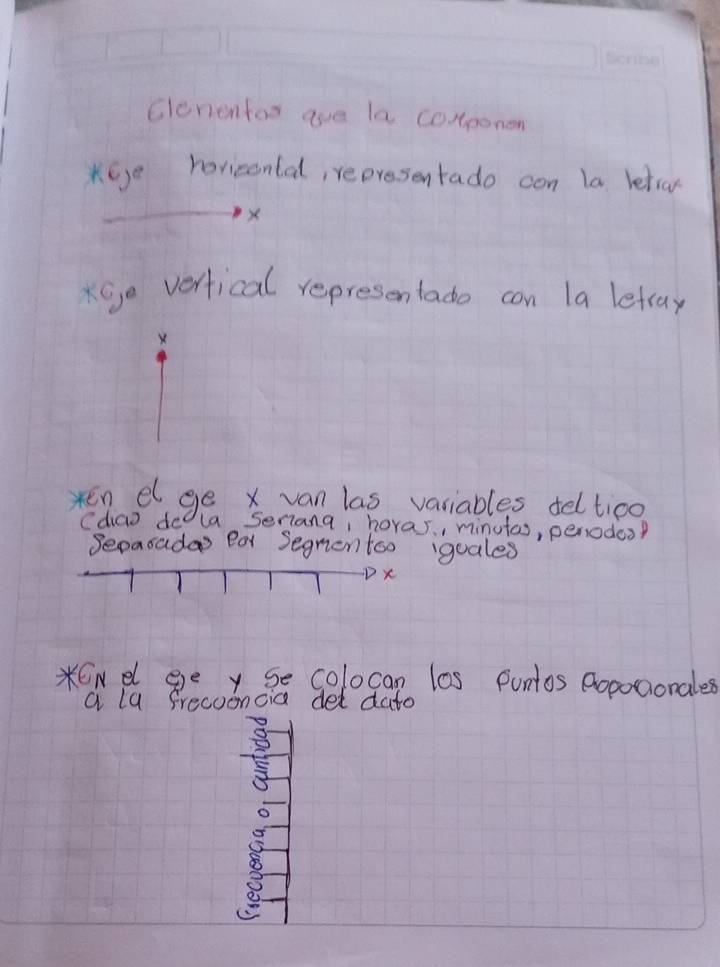 Scribe
Elementos que la componen
*Eje horizontal, representado con la letra x
x
*Eje vertical representado con la letra y
x
*En el eje x van las variables del tipo
(dias de la semana, horas, minutos, periodos)
separadas por segmentos iguales
x
*EN el eje y se colocan los puntos proporcionales
a la frecuencia del dato
frecuencia o cantidad